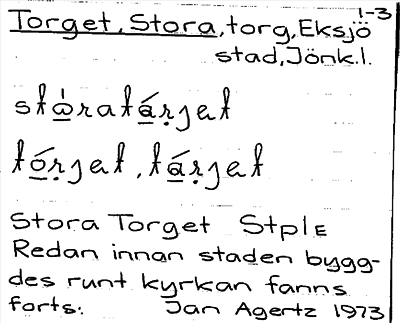 1-3
Torget, Stora, torg, Eksjö
stad, Jönk.l.
stὼ̲ratá̲ṛjet
tó̲ṛjet, tá̲ṛjet
Stora Torget StplE
Redan innan staden bygg-
des runt kyrkan fanns
forts. Jan Agertz 1973